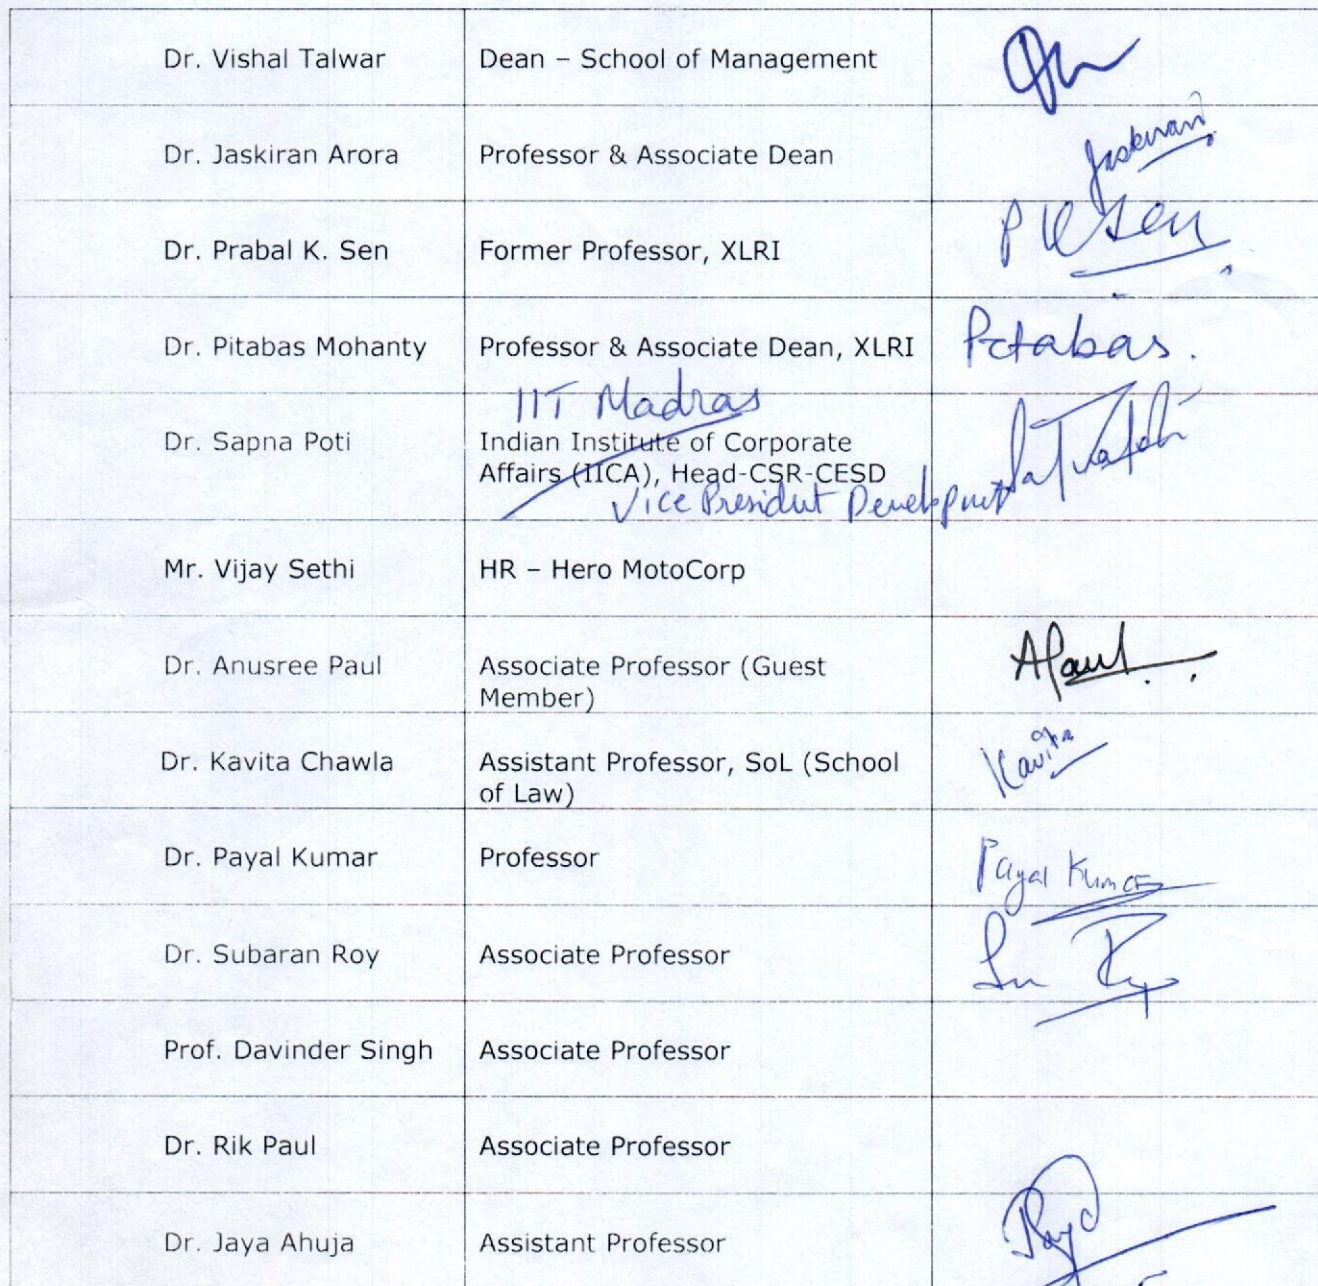 Dr. Vishal Talwar Dean – School of Management
Dr. Jaskiran Arora Professor & Associate Dean Jaskiran
Dr. Prabal K. Sen Former Professor, XLRI P K Sen
Dr. Pitabas Mohanty Professor & Associate Dean, XLRI Pitabas.
IIT Madras
Dr. Sapna Poti Indian Institute of Corporate
Affairs (IICA), Head-CSR-CESD
Vice President Development
Mr. Vijay Sethi HR – Hero MotoCorp
Dr. Anusree Paul Associate Professor (Guest APaul
Member)
Dr. Kavita Chawla Assistant Professor, SoL (School Kavita
of Law)
Dr. Payal Kumar Professor Payal Kumar
Dr. Subaran Roy Associate Professor
Prof. Davinder Singh Associate Professor
Dr. Rik Paul Associate Professor
Dr. Jaya Ahuja Assistant Professor